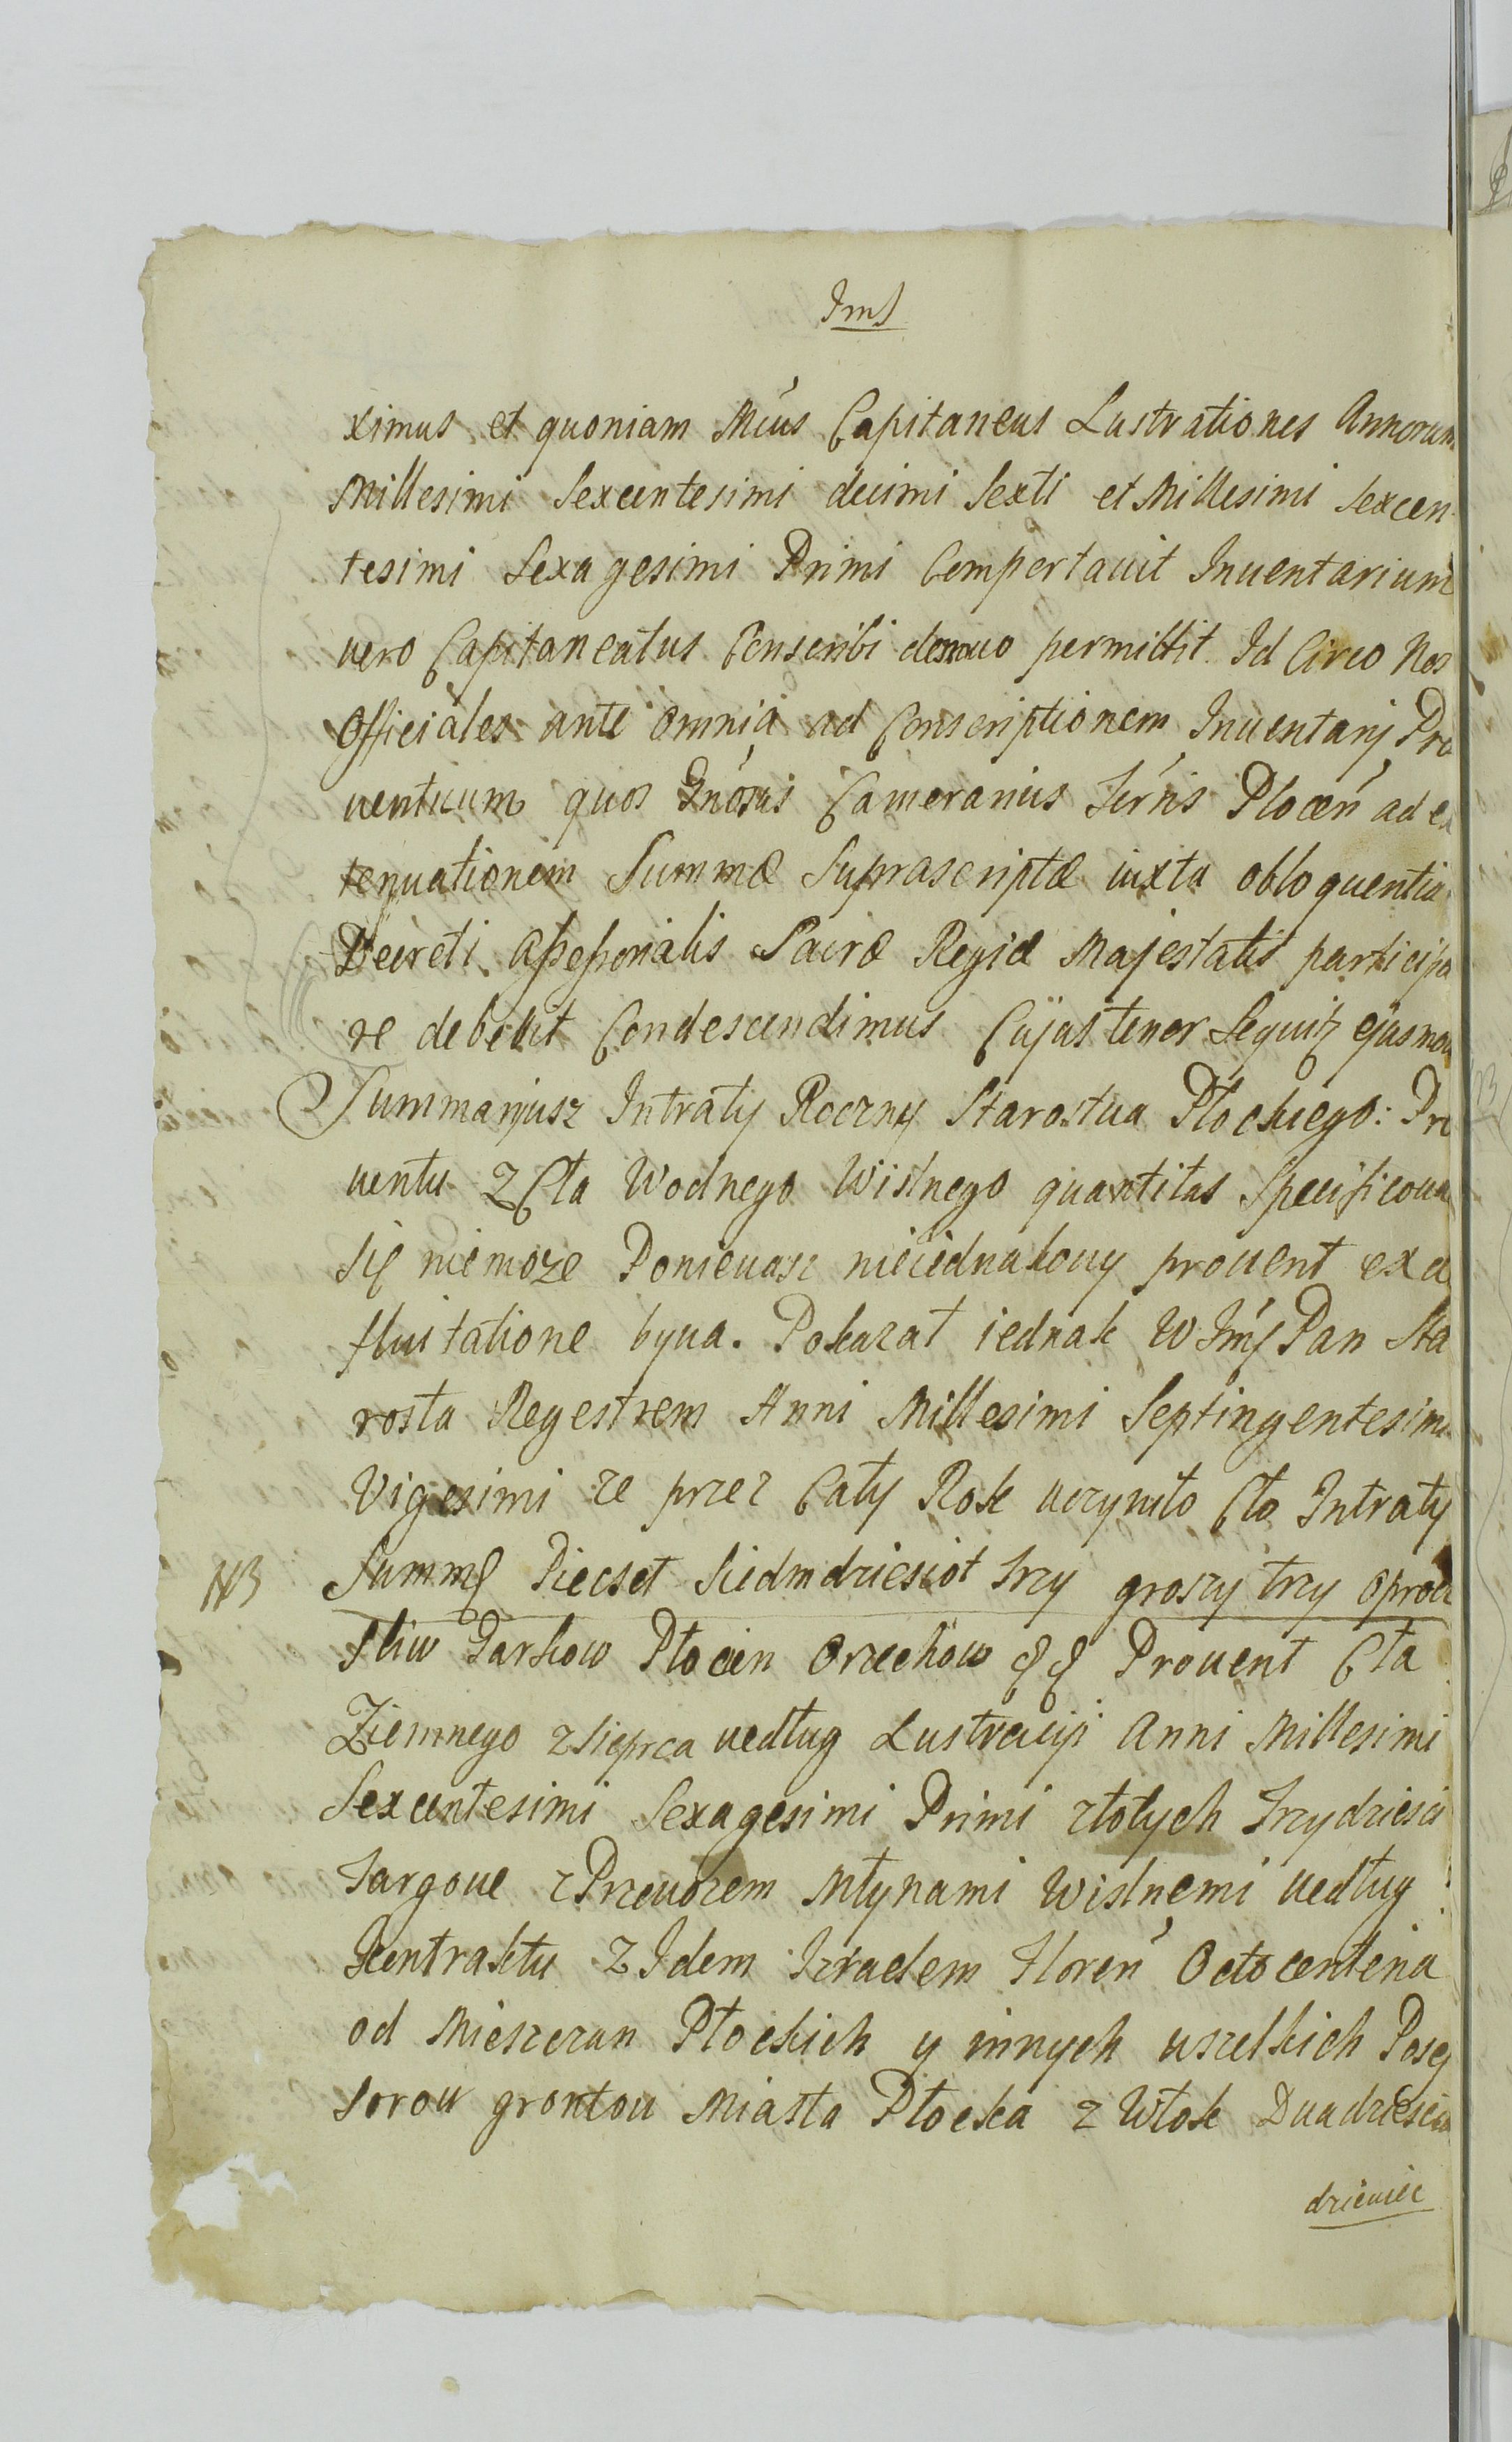 Jmſ
ximus et quoniam Mćus Capitaneus Lustrationes Annorum
Millesimi Sexcentesimi decimi Sexti et Millesimi Sexcen
tesimi Sexagesimi Primi Comportavit Inventarium
vero Capitaneatus Conscribi denuo permittit. Id Circo Nos
Officiales ante omnia ad Conscriptionem Inventarij Pro
uentuum quos Gńosus Camerarius Ter̃ris Plocen̄ ad ex
tenuationem Summæ Suprascriptæ iuxta obloquentia
Decreti Assessorialis Sacræ Regiæ Majestatis participa
re debebit Condescendimus Cujus tenor Sequitꝛ ejusmodi
Summarjusz Intraty Roczny Starostua Płockiego: Pro
uentu z Cła Wodnego Wislnego quantitas Specificoua
Się niemoze Poniewasz nieiednakowy prouent exa
fluitatione bywa. Pokazał iednak W Jm̃ſ Pan Sta
rosta Regestrem Anni Millesimi Septingentesimi
Vigesimi ze przez Cały Rok uczyniło Cło Intraty
NB Summę Piecset Siedmdziesiot Trzy groszy trzy oprocz
Sliw Garkow Płocien Orzechow &c &c Prouent Cła
Ziemnego z Sieprca uedług Lustracyi Anni Millesimi
Sexcentesimi Sexagesimi Primi złotych Trzydziesci
Targoue z Przeuozem Młynami Wislnemi uedług
Kontraktu z Zydem Izraelem Floren̄ Octocentena
od Mieszczan Płockich y innych uszelkich Posey
sorou grontou Miasta Płocka z Włok Duadziescia
dzieuiec